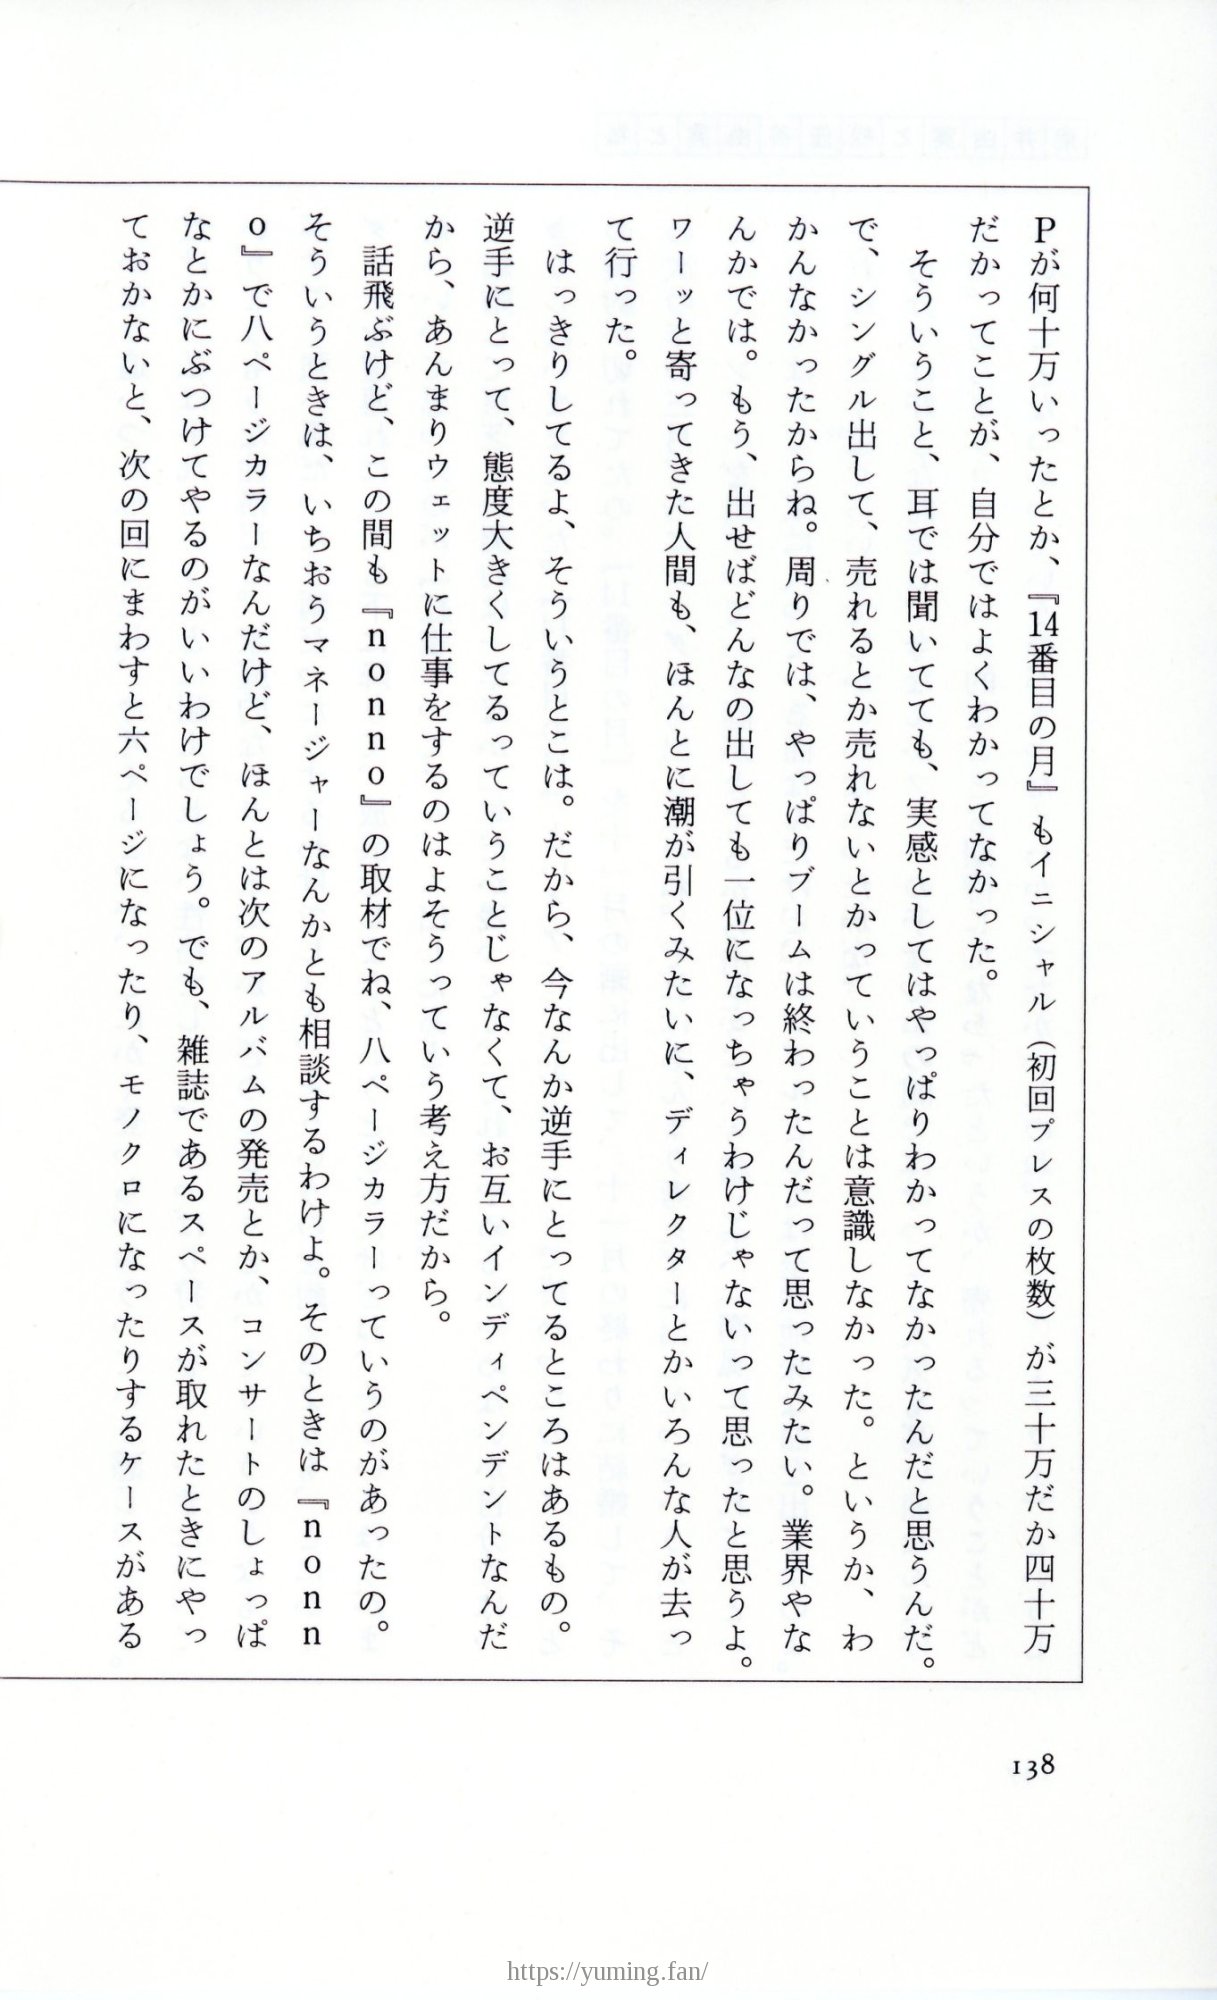 Pが何十万いったとか、『14番目の月』もイニシャル(初回プレスの枚数)が三十万だか四十万
だかってことが、自分ではよくわかってなかった。
そういうこと、耳では聞いてても、実感としてはやっぱりわかってなかったんだと思うんだ。
で、シングル出して、売れるとか売れないとかっていうことは意識しなかった。というか、わ
かんなかったからね。周りでは、やっぱりブームは終わったんだって思ったみたい。業界やな
んかでは。もう、出せばどんなの出しても一位になっちゃうわけじゃないって思ったと思うよ。
ワーッと寄ってきた人間も、ほんとに潮が引くみたいに、ディレクターとかいろんな人が去っ
て行った。
はっきりしてるよ、そういうとこは。だから、今なんか逆手にとってるところはあるもの。
逆手にとって、態度大きくしてるっていうことじゃなくて、お互いインディペンデントなんだ
から、あんまりウェットに仕事をするのはよそうっていう考え方だから。
話飛ぶけど、この間も『nonno』の取材でね、八ページカラーっていうのがあったの。
そういうときは、いちおうマネージャーなんかとも相談するわけよ。そのときは『nonn
o』で八ページカラーなんだけど、ほんとは次のアルバムの発売とか、コンサートのしょっぱ
なとかにぶつけてやるのがいいわけでしょう。でも、雑誌であるスペースが取れたときにやっ
ておかないと、次の回にまわすと六ページになったり、モノクロになったりするケースがある
138
https://yuming.fan/